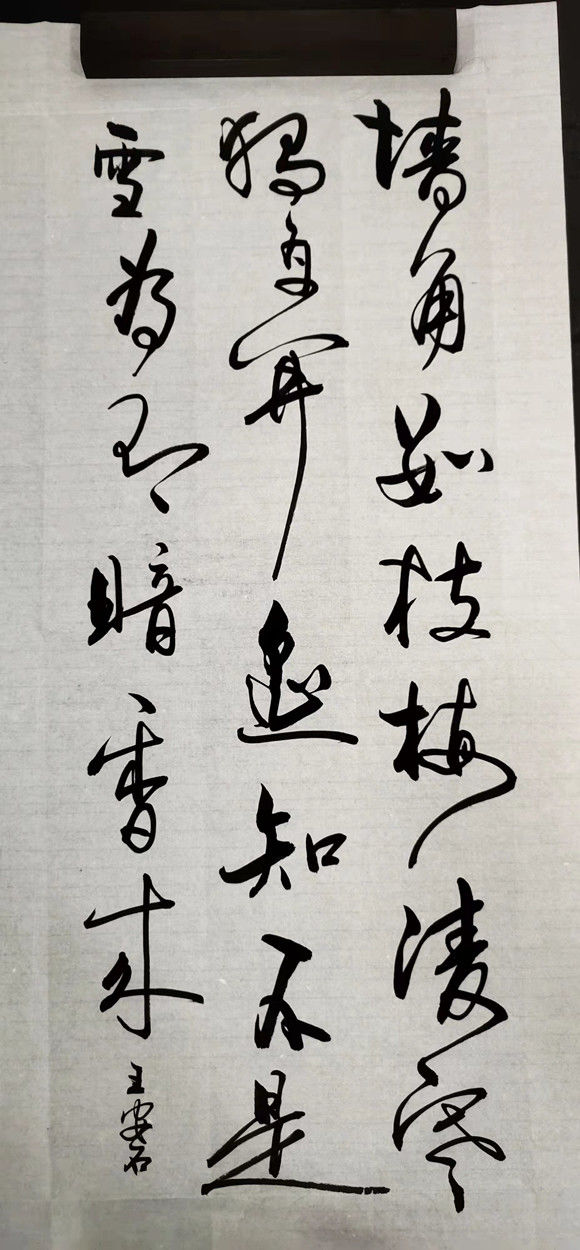 墙角数枝梅凌寒
独自开遥知不是
雪为有暗香来
王安石